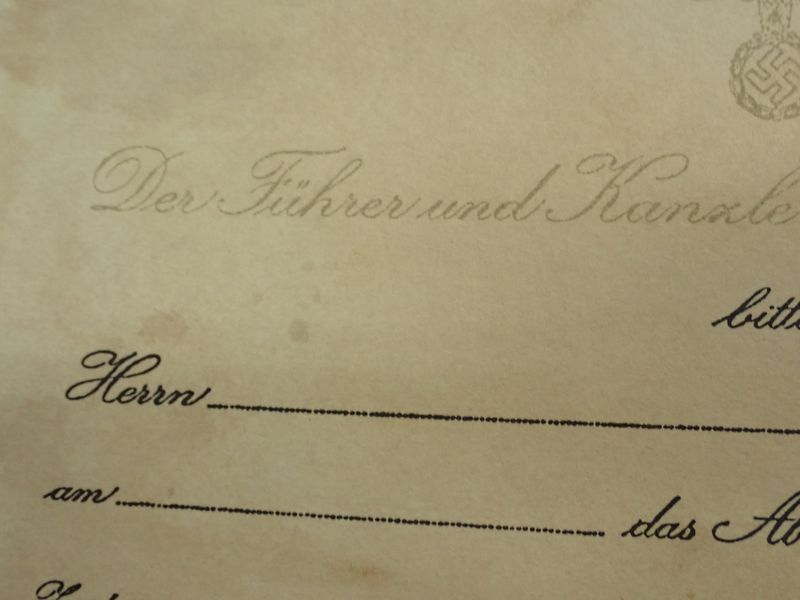 Der Führer und Kanzle
bitte
Herrn
am das Ab